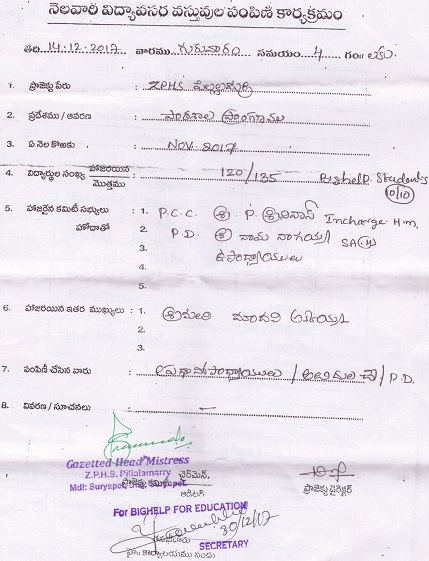 నెలవారి విద్యావసర వస్తువుల పంపిణి కార్యక్రమం
తేది 14-12-2017 వారము గురువారం సమయం 4 గం॥ లకు
1. ప్రాజెక్టు పేరు : ZPHS పిల్లలమర్రి
2. ప్రదేశము / ఆవరణ : పాఠశాల ప్రాంగణము
3. ఏ నెల కొఱకు : Nov. 2017
4. విద్యార్థుల సంఖ్య హాజరయిన / మొత్తము : 120/135 Bighelp. Students 10/10
5. హాజరైన కమిటీ సభ్యులు హోదాతో : 1. P.C.C. శ్రీ. P. శ్రీనివాస్ Incharge H.M,
2. P.D. శ్రీ నాగయ్య SA
3. ఉపాధ్యాయులు
4.
5.
6. హాజరయిన ఇతర ముఖ్యులు : 1. శ్రీమతి మాధవి
2.
3.
7. పంపిణీ చేసిన వారు : ప్రధానోపాధ్యాయులు / / P.D.
8. వివరణ / సూచనలు : —
Gazetted Head Mistress
Z.P.H.S. Pillalamarry
Mdl: Suryapet, Suryapet.
ప్రాజెక్టు కమిటి ఛైర్మన్, ప్రాజెక్టు డైరెక్టర్
For BIGHELP FOR EDUCATION
30/12/17
SECRETARY
కార్యాలయము నందు